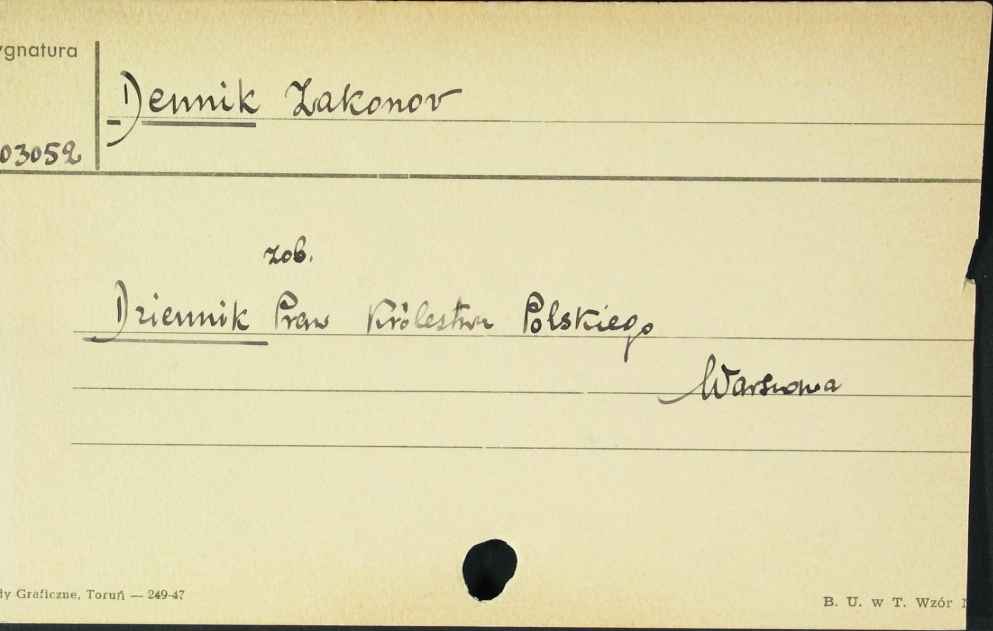 ygnatura
Dennik Zakonov
03052
zob.
Dziennik Praw Królestwa Polskiego
Warszawa
dy Graficzne, Toruń — 249-47
B. U. w T. Wzór